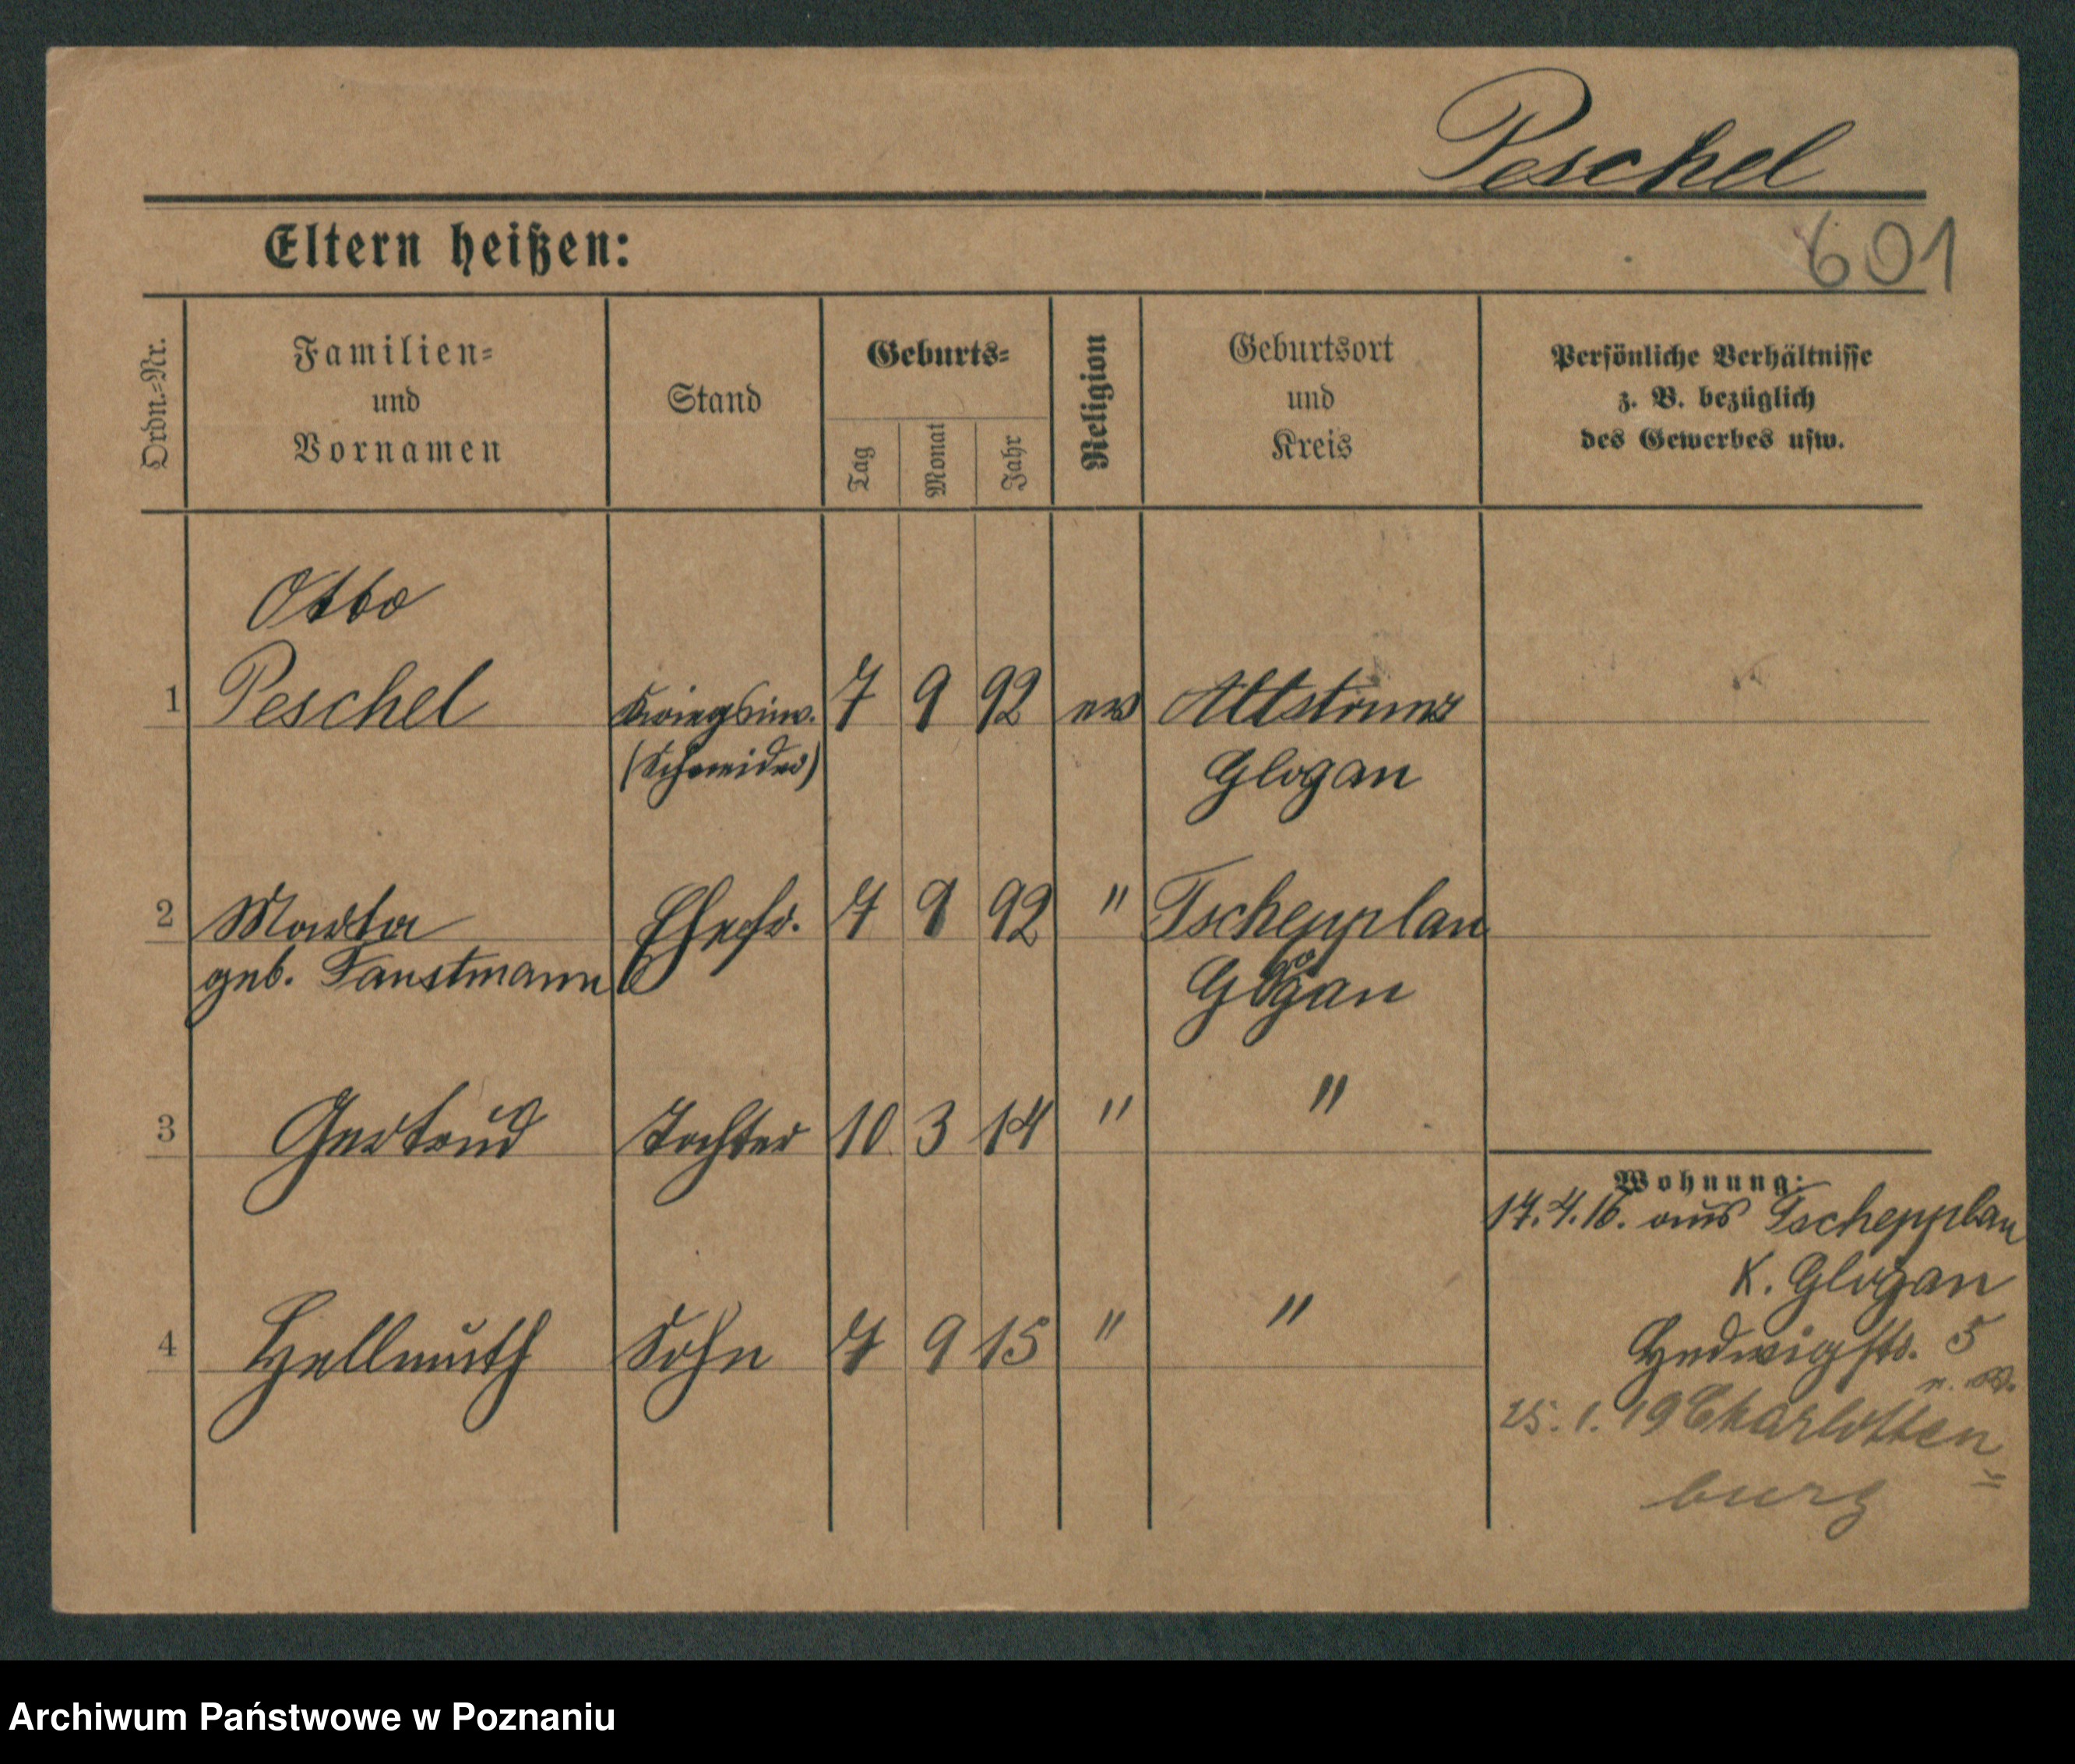 Peschel
601
Eltern heißen:
Ordn.-Nr.
Familien-
und
Vornamen
Stand
Geburts-
Tag
Monat
Jahr
Religion
Geburtsort
und
Kreis
Persönliche Verhältnisse
z. B. bezüglich
des Gewerbes usw.
Otto
1 Peschel Kriegsinv. 7 9 92 ev
(Schneider) Glogau
2 Marta Ehefr. 7 9 92 " Tschepplau
geb. Faustmann Glogau
3 Gertrud Tochter 10 3 14 " "
Wohnung:
17.4.16. aus Tschepplau
K. Glogau
4 Hellmuth Sohn 7 9 15 " "
Hedwigstr. 5
25.1.19 Charlotten=
burg
Archiwum Państwowe w Poznaniu